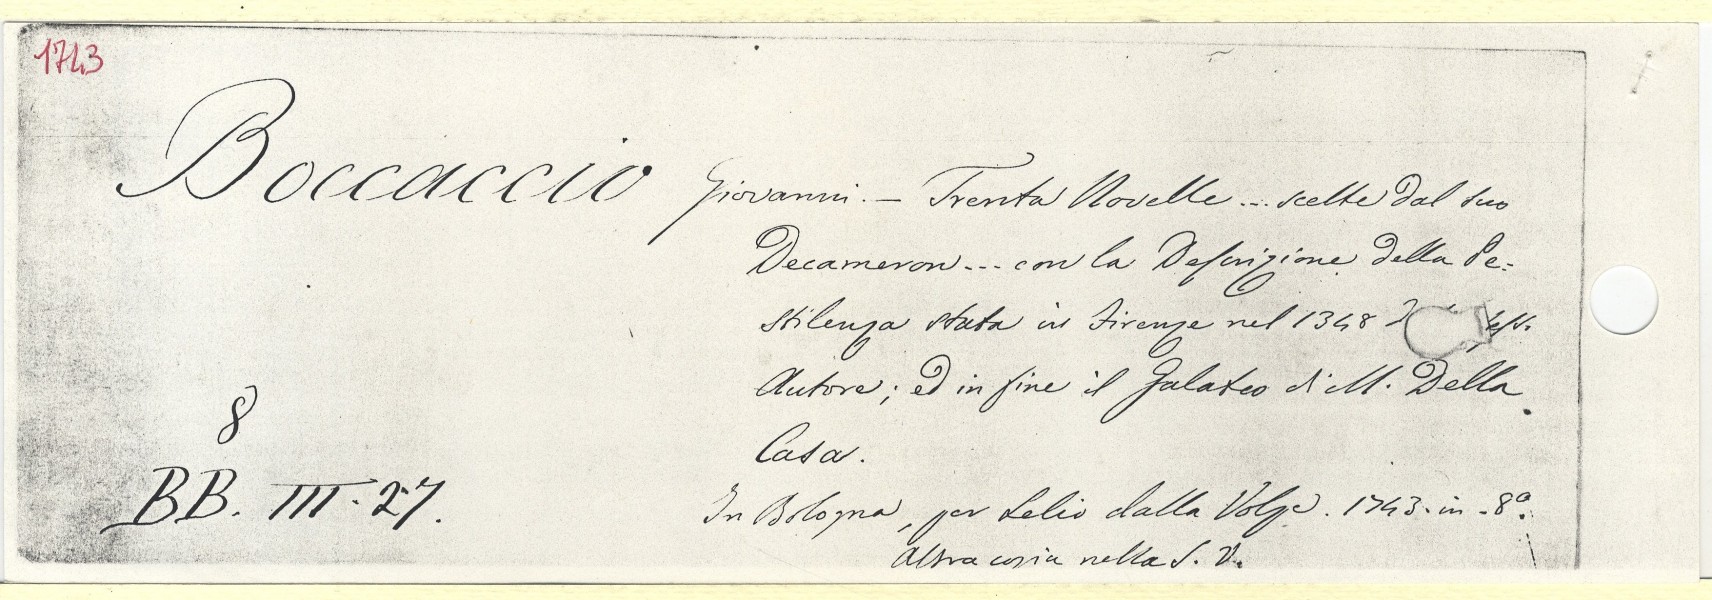 1743
Boccaccio Giovanni. – Trenta Novelle ... scelte dal suo
Decameron ... con la Descrizione della Pe=
stilenza stata in Firenze nel 1348
Autore; ed in fine il Galateo di M. Della
Casa.
8
BB. III. 27.
In Bologna, per Lelio dalla Volpe. 1743. in -8º.
Altra copia nella S. V.